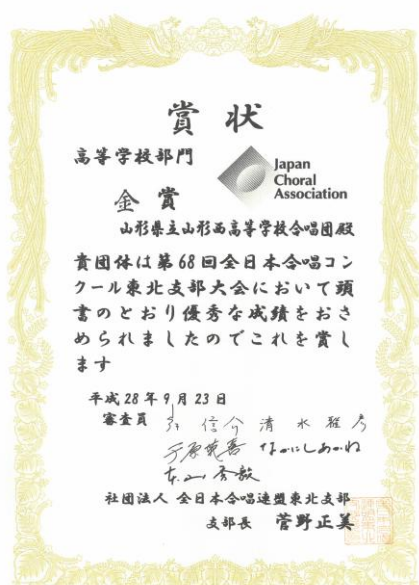 賞状
高等学校部門
Japan
Choral
Association
金賞
山形県立山形西高等学校合唱団殿
貴団体は第68回全日本合唱コン
クール東北支部大会において頭
書のとおり優秀な成績をおさ
められましたのでこれを賞し
ます
平成28年9月23日
審査員 信介 清水雅彦
なかにしあかね
社団法人 全日本合唱連盟東北支部
支部長 菅野正美